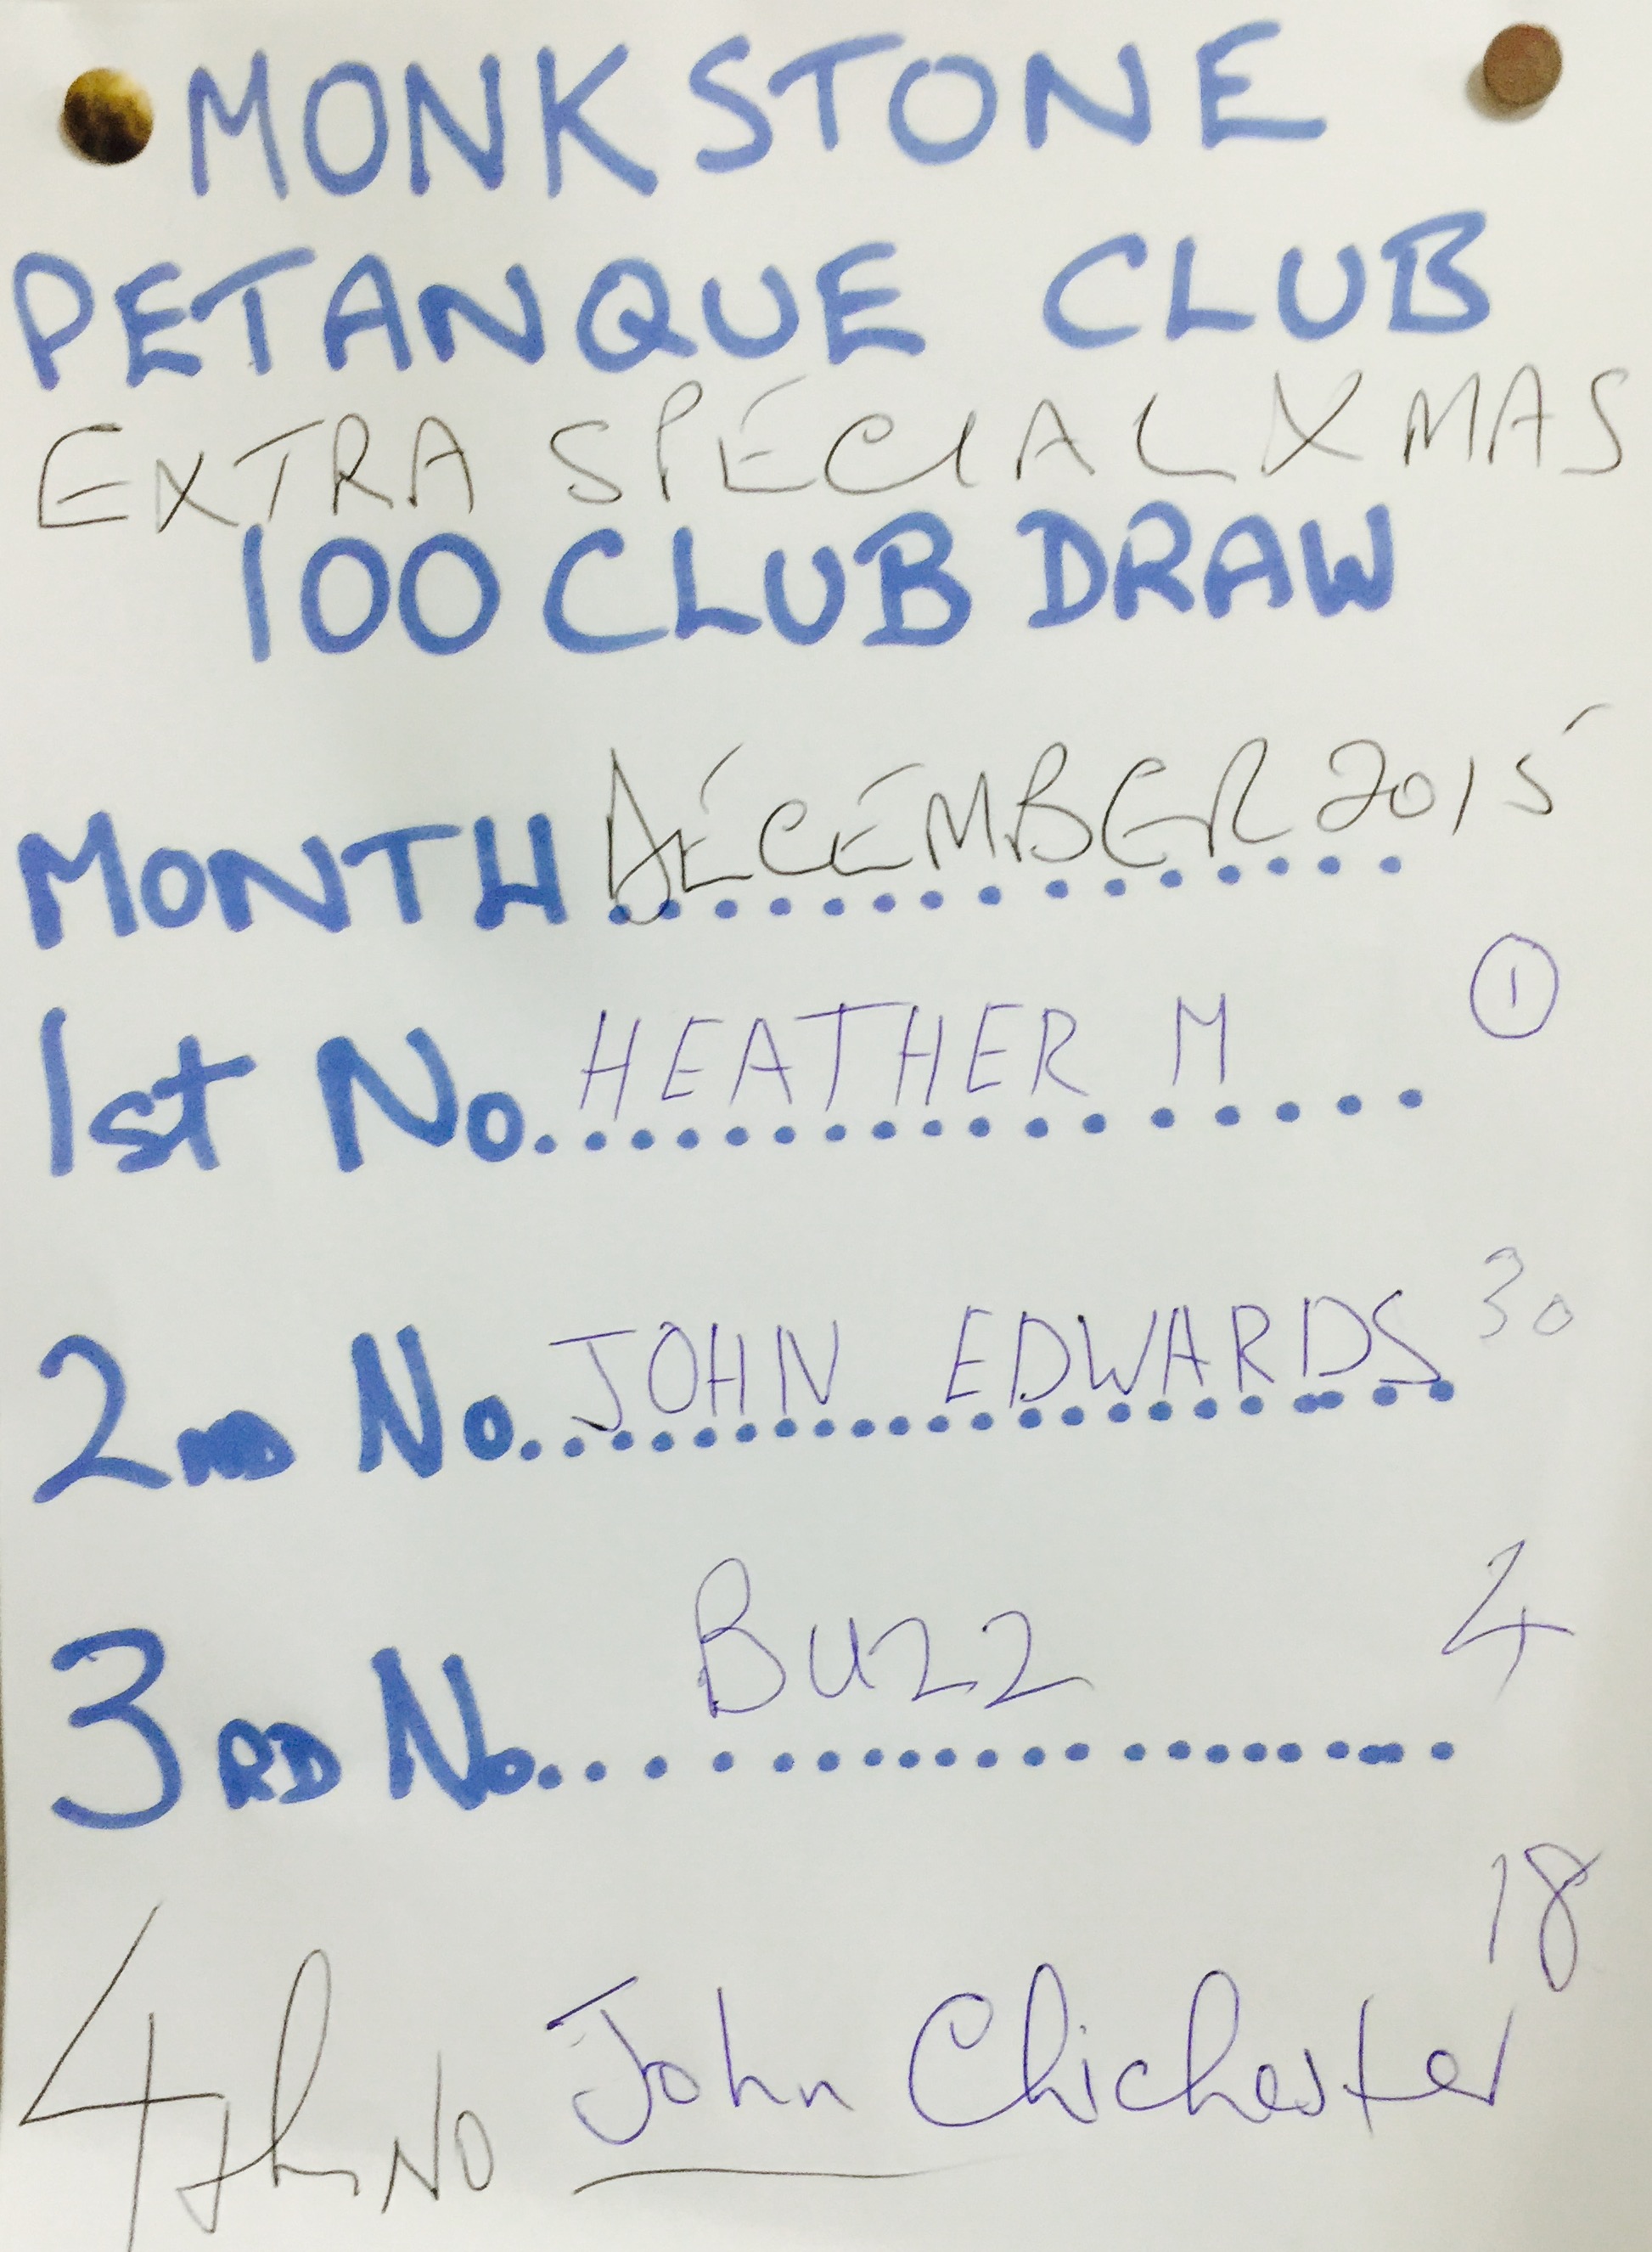 MONKSTONE
PETANQUE CLUB
EXTRA SPECIAL XMAS
100 CLUB DRAW
MONTH DECEMBER 2015
1st No. HEATHER M 1
2ND No. JOHN EDWARDS 30
3RD No. BUZZ 4
4th NO John Chichester 18